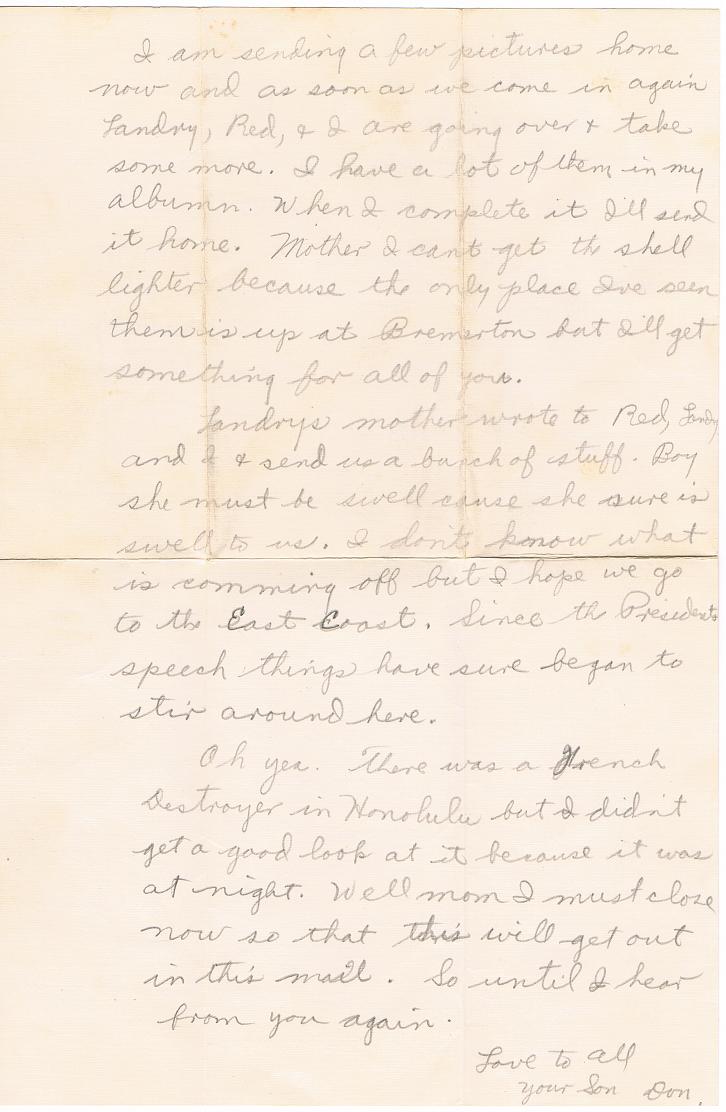 I am sending a few pictures home
now and as soon as we come in again
Landry, Red, & I are going over & take
some more. I have a lot of them in my
albumn. When I complete it I'll send
it home. Mother I can't get the shell
lighter because the only place I've seen
them is up at Bremerton but I'll get
something for all of you.
Landrys mother wrote to Red, Landry
and I & send us a bunch of stuff. Boy
she must be swell cause she sure is
swell to us. I don't know what
is comming off but I hope we go
to the East Coast. Since the Presidents
speech things have sure began to
stir around here.
Oh yea. There was a French
Destroyer in Honolulu but I didn't
get a good look at it because it was
at night. Well mom I must close
now so that this will get out
in this mail. So until I hear
from you again.
Love to all
your Son Don.